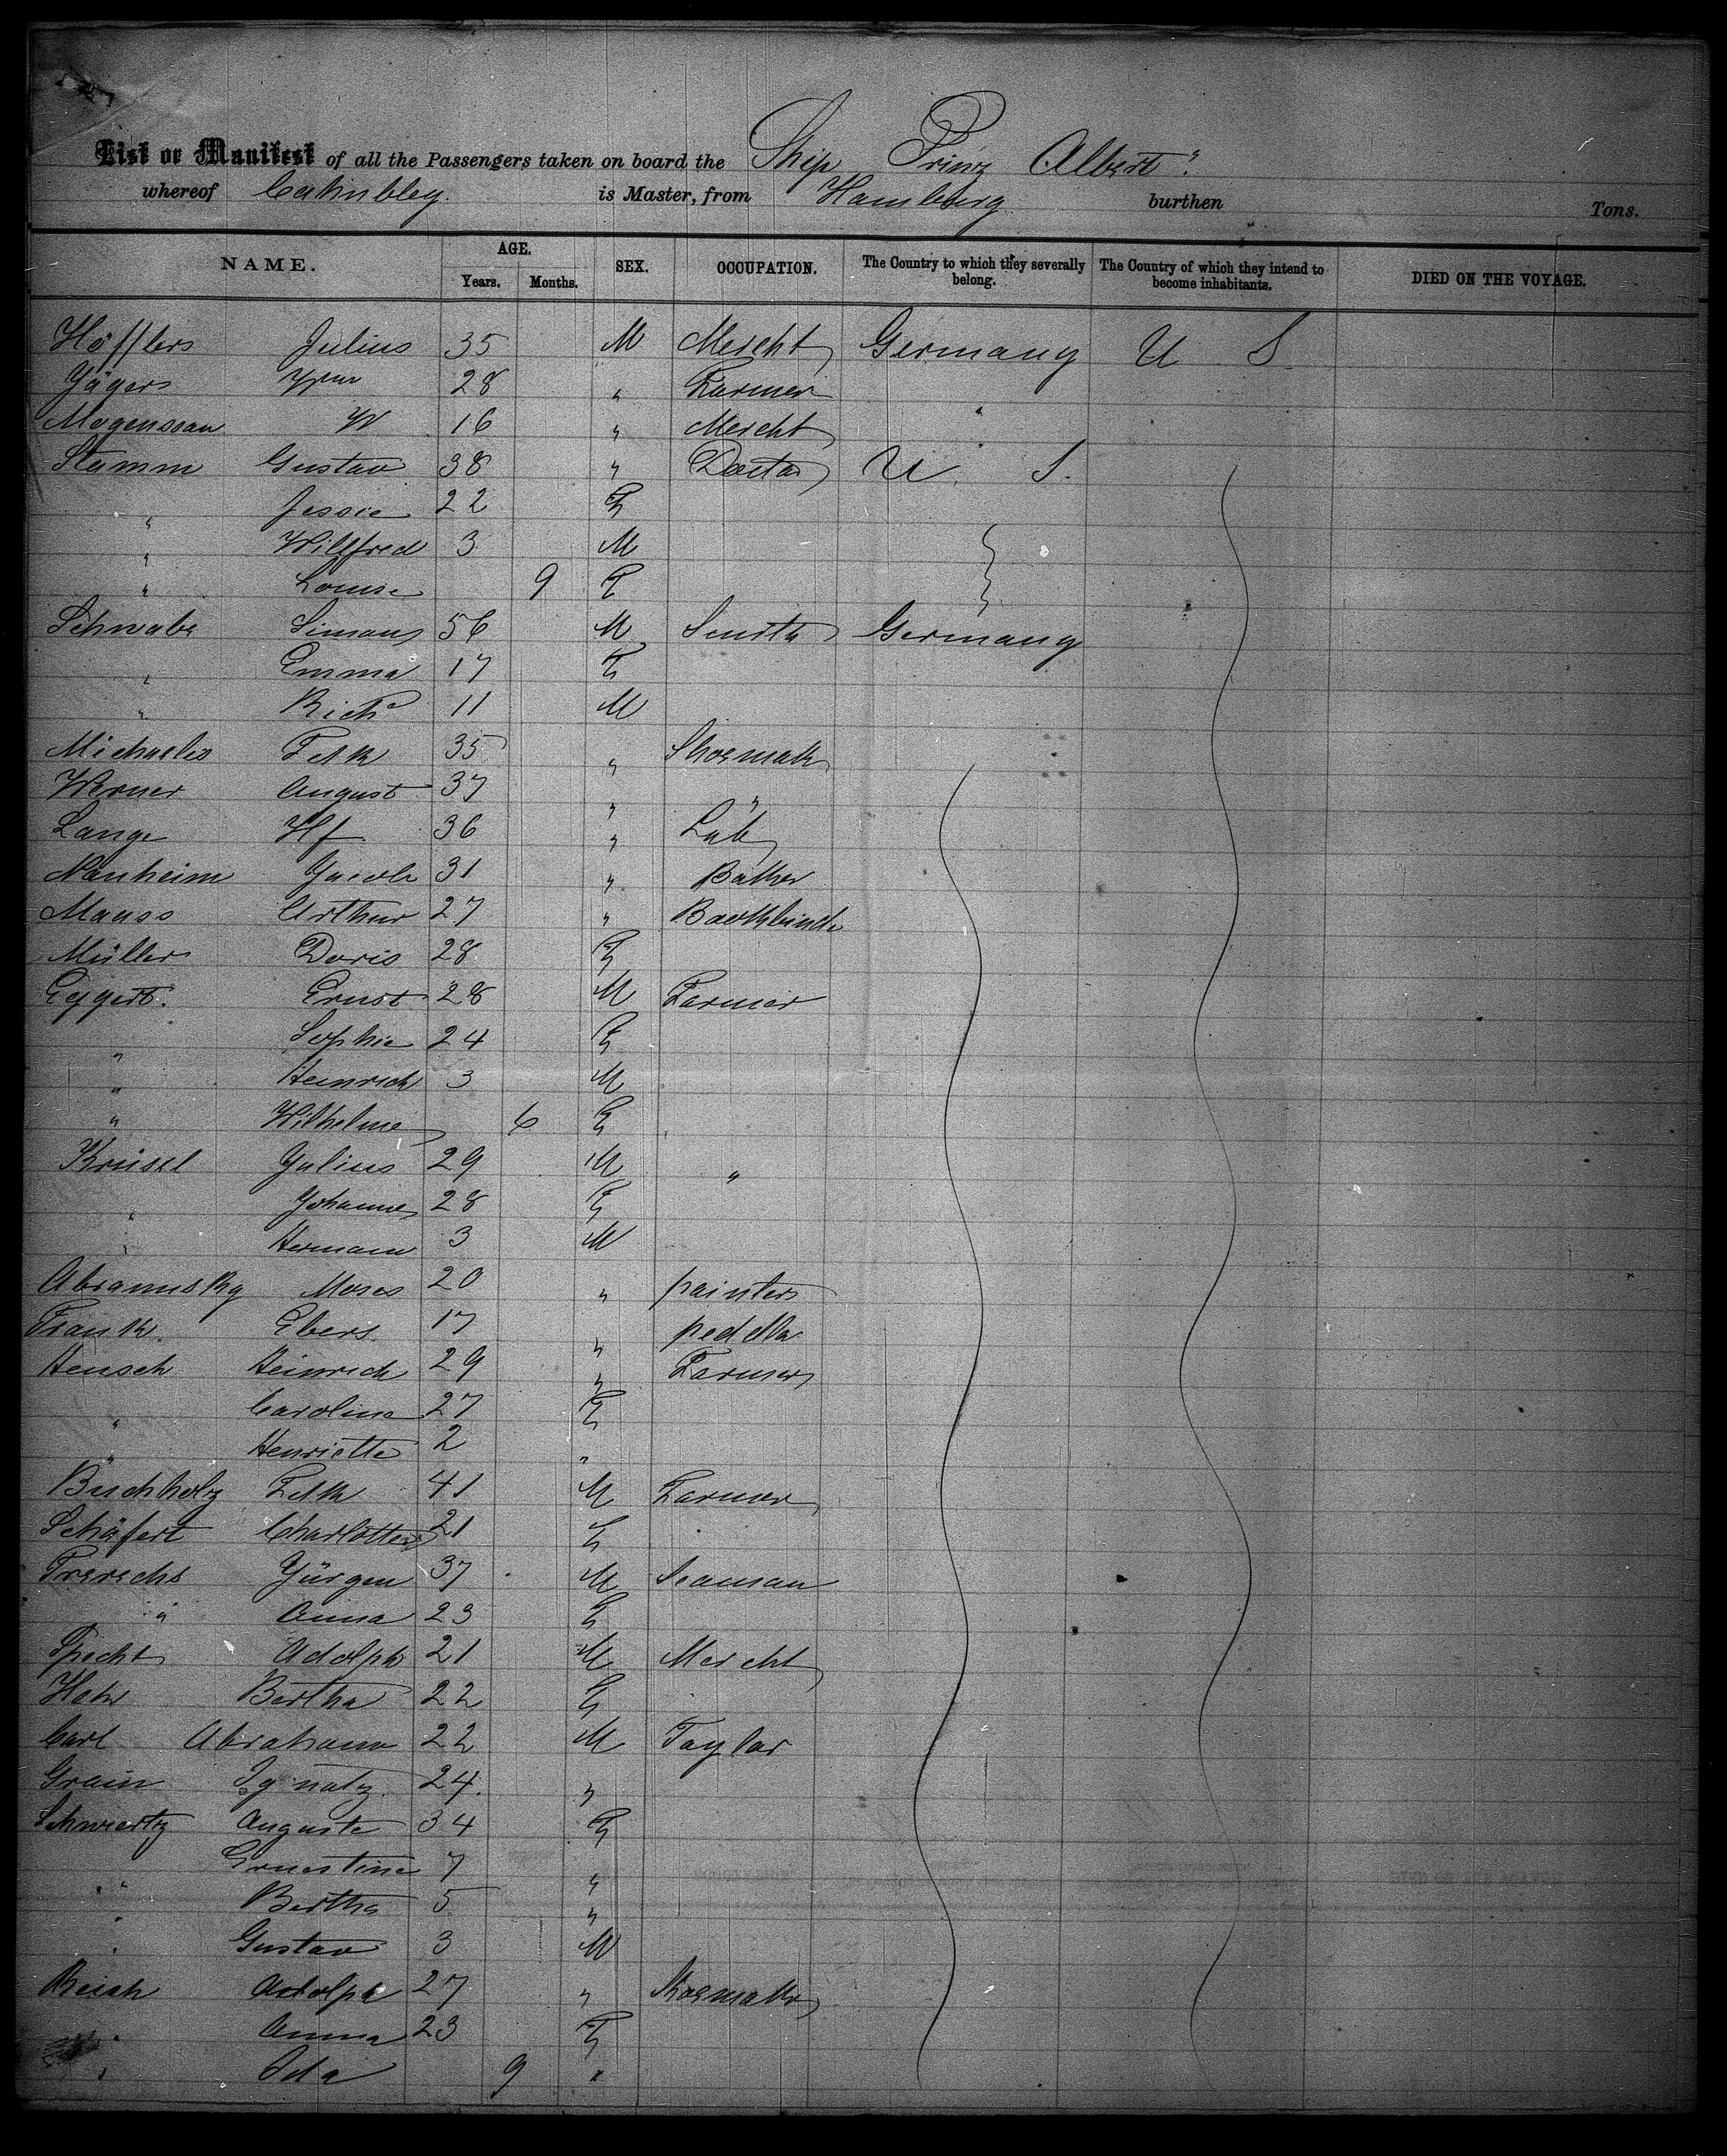 List or Manifest of all the Passengers taken on board the Ship Prinz Albert
whereof is Master, from Hamburg burthen Tons.
NAME. AGE. Years. Months. SEX. OCCUPATION. The Country to which they severally belong. The Country of which they intend to become inhabitants. DIED ON THE VOYAGE.
Höfflers Julius 35 M Mercht Germany U S
Jägers Wm 28 " Farmer "
Mogenssan W 16 " Mercht
Stamm Gustav 38 " U. S.
" Jessie 22 F
" Willfred 3 M
" Louise 9 F
Schwabe Simon 56 M Smith Germany
" Emma 17 F
" Richd 11 M
Michaelis Felk 35 " Shoemak
Werner August 37 " "
Lange Hf 36 " Lab
Manheim Jacob 31 " Baker
Mauss Arthur 27 " Bookbinde
Müller Doris 28 F
Eggert. Ernst 28 M Farmer
" Sophie 24 F
" Heinrich 3 M
" Wilhelme 6 F
Krüsel Julius 29 M "
" Johanne 28 F
" Hermann 3 M
Abramsky Moses 20 " painter
Frank. Ebers. 17 " peddla
Hensch Heinrich 29 " Farmer
" Carolina 27 F
" Henriette 2 "
Buchholz Felk 41 M Farmer
Schäfert Charlotte 21 F
Jürgen 37 M Seaman
" Anna 23 F
Specht Adolph 21 M Mercht
Bertha 22 F
Carl Abraham 22 M Taylor
Grain Ignatz. 24. "
Schwiertz Auguste 34 F
" Ernestine 7 "
" Bertha 5 "
" Gustav 3 M
Reich Adolph 27 " Shoemak
" Anna 23 F
" Ida 9 "